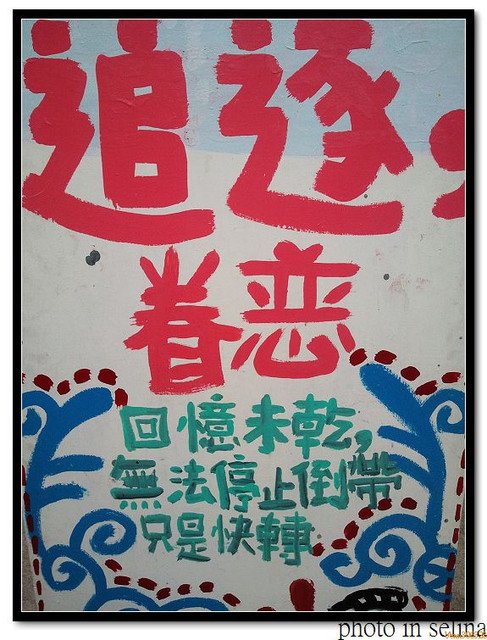 追逐，
眷恋
回憶未乾，
無法停止倒帶
只是快轉
photo in selina